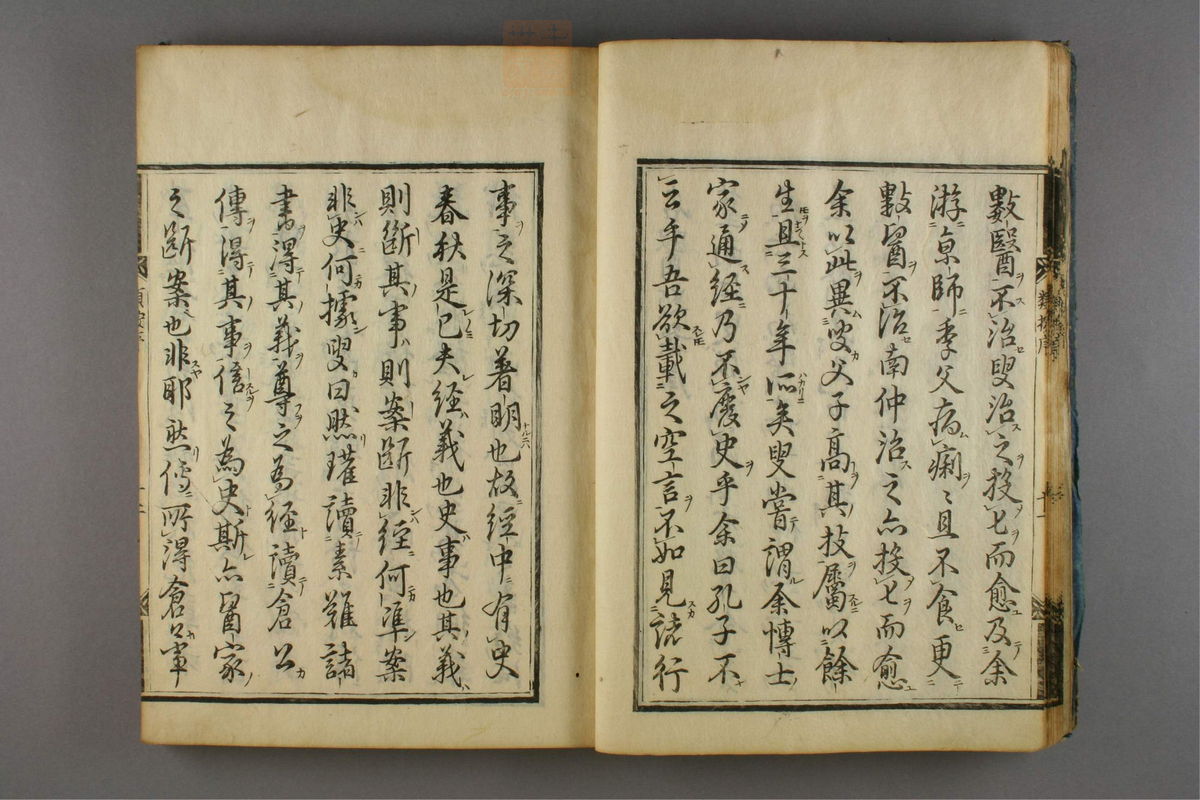 數醫不治叟治之投匕而愈及余
游京師季父病痢〻且不食更
數醫不治南仲治之亦投匕而愈
余以此異叟父子高其技屬以餘
生且三十年所矣叟嘗謂余博士
家通經乃不廢史乎余曰孔子不
云乎吾欲載之空言不如見諸行
事之深切著明也故經中有史
春秋是已夫經義也史事也其義
則斷其事則案斷非經何準案
非史何據叟曰然瓘讀素難諸
書得其義尊之為經讀倉公
傳得其事信之為史斯亦醫家
之斷案也非耶然傳所得倉公軍